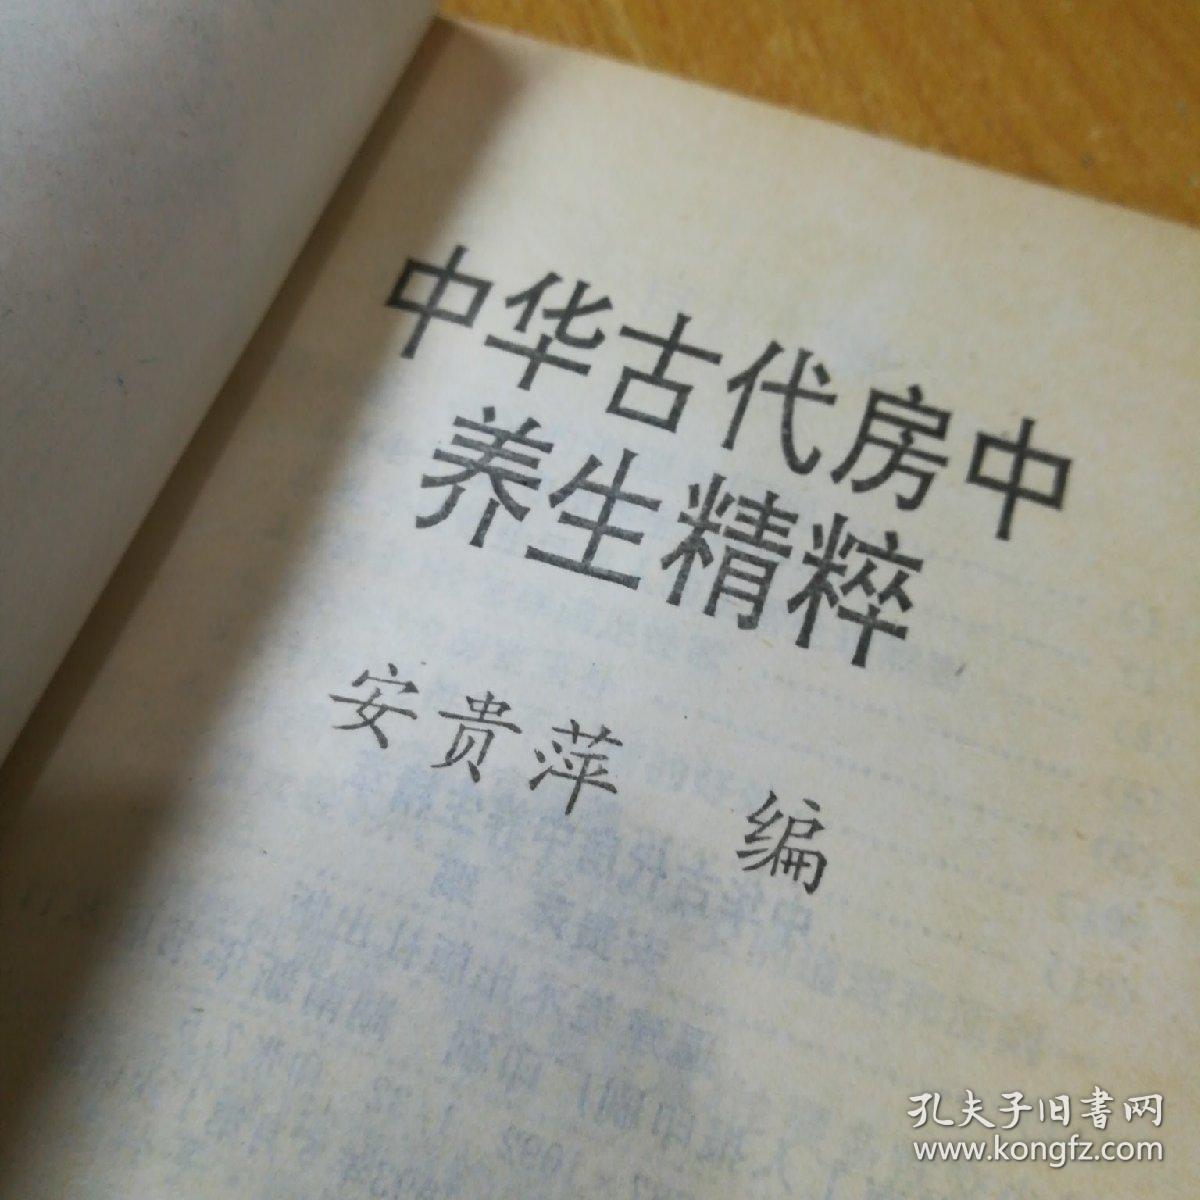 中华古代房中
养生精粹
安贵萍 编
孔夫子旧书网
www.kongfz.com